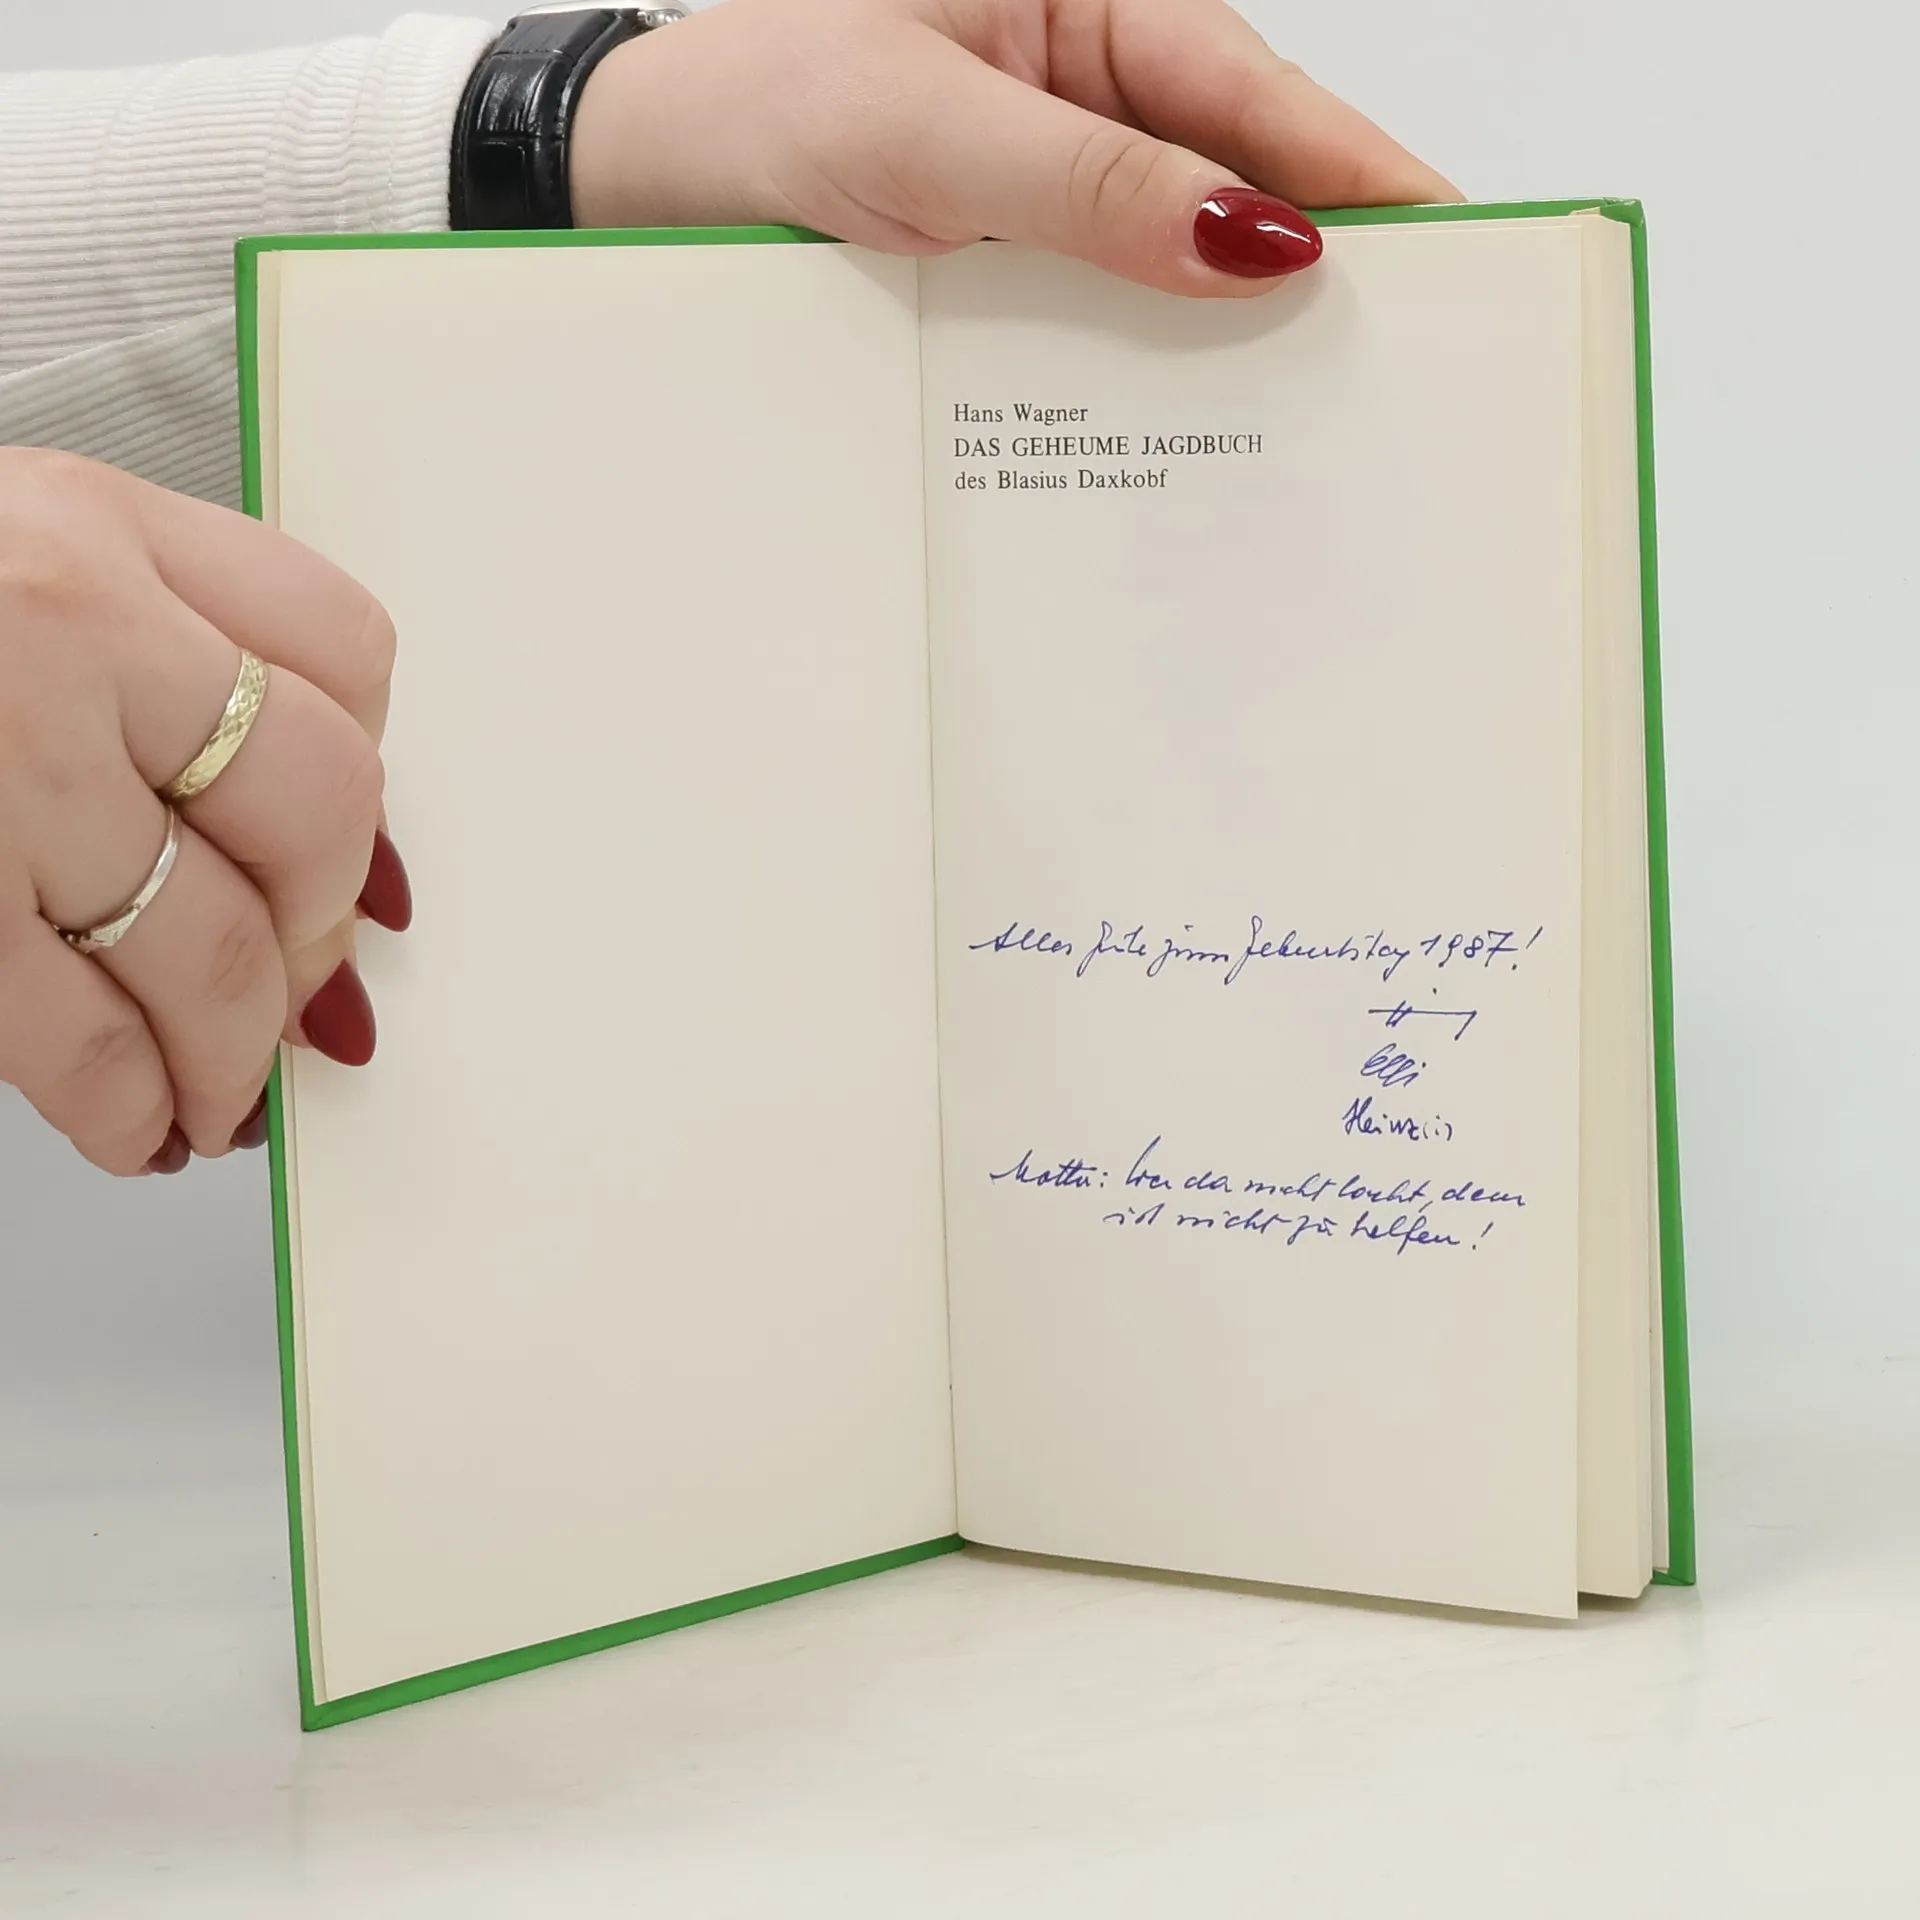 Hans Wagner
DAS GEHEUME JAGDBUCH
des Blasius Daxkobf
Alles Gute zum Geburtstag 1987!
Elli
Heinz(i)
Motto: Wer da nicht lacht, dem
ist nicht zu helfen!